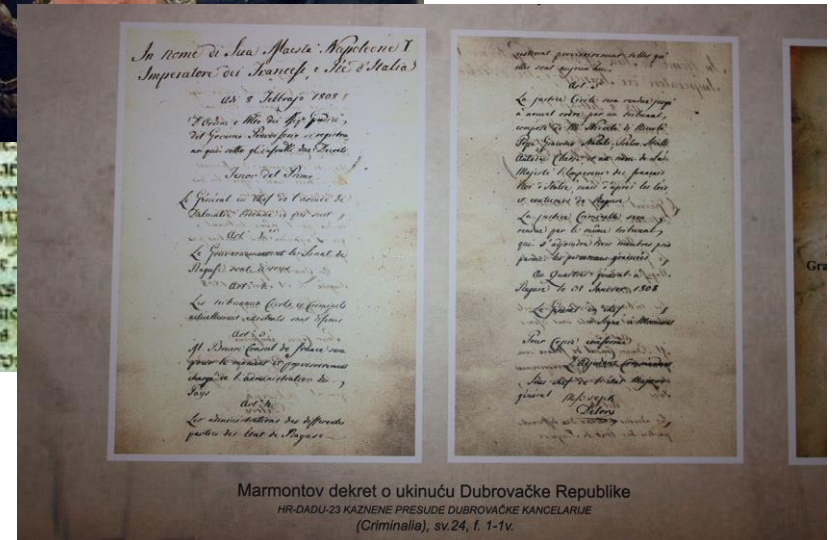 In nome di Sua Maestà Napoleone I
Imperatore dei Francesi, e Rè d'Italia
Adi 8 Febbrajo 1808
D'Ordine e
del Governo Provvisorio si registra
no qui sotto gl'infratti due Decreti
Tenor del Primo
Le Général en chef de l'armée de
Dalmatie ordonne ce qui suit
Art. 1er
Le Gouvernement et le Sénat de
Raguse sont dissous
Art. 2.
Les tribunaux Civils et Criminels
actuellement existents sont
Art. 3.
M. Bruere Consul de France sera
pour le moment et provisoirement
chargé de l'administration du
Pays
Art. 4.
Les administrations des differentes
parties des Etat de Raguse
resteront provisoirement telles qu'
elles sont aujourd'hui
Art. 5
La justice Civile sera rendue jusqu'
à nouvel ordre par un tribunal,
composé de MM.
Natali, Pietro
Antoine et au nom de Sa
Majesté l'Empereur des français
Roi d'Italie, mais d'après les lois
et coutumes de Raguse
La justice Criminelle sera
rendue par le même tribunal,
qui s'adjoindra trois membres pris
parmi les personnes
Au Quartier général à
Raguse le 31 Janvier 1808
Le général en chef
Signé Marmont
Pour Copie conforme
L'Adjudant Commandant
Sous chef de l'état Major
général
Delort
Gra
Marmontov dekret o ukinuću Dubrovačke Republike
HR-DADU-23 KAZNENE PRESUDE DUBROVAČKE KANCELARIJE
(Criminalia), sv.24, f. 1-1v.